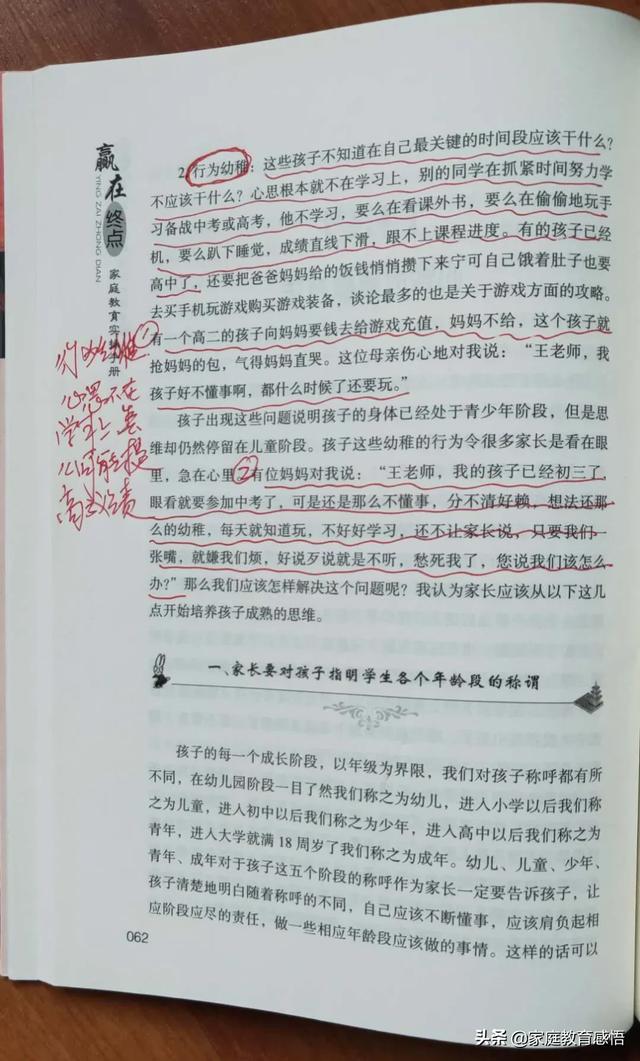 赢在终点
YING ZAI ZHONG DIAN
家庭教育实
册
2.行为幼稚：这些孩子不知道在自己最关键的时间段应该干什么？
不应该干什么？心思根本就不在学习上，别的同学在抓紧时间努力学
习备战中考或高考，他不学习，要么在看课外书，要么在偷偷地玩手
机，要么趴下睡觉，成绩直线下滑，跟不上课程进度。有的孩子已经
高中了，还要把爸爸妈妈给的饭钱悄悄攒下来宁可自己饿着肚子也要
去买手机玩游戏购买游戏装备，谈论最多的也是关于游戏方面的攻略。
有一个高二的孩子向妈妈要钱去给游戏充值，妈妈不给，这个孩子就
抢妈妈的包，气得妈妈直哭。这位母亲伤心地对我说：“王老师，我
孩子好不懂事啊，都什么时候了还要玩。”
孩子出现这些问题说明孩子的身体已经处于青少年阶段，但是思
维却仍然停留在儿童阶段。孩子这些幼稚的行为令很多家长是看在眼
里，急在心里。有位妈妈对我说：“王老师，我的孩子已经初三了，
眼看就要参加中考了，可是还是那么不懂事，分不清好赖，想法还那
么的幼稚，每天就知道玩，不好好学习，还不让家长说，只要我们一
张嘴，就嫌我们烦，好说歹说就是不听，愁死我了，您说我们该怎么
办？”那么我们应该怎样解决这个问题呢？我认为家长应该从以下这几
点开始培养孩子成熟的思维。
①
②
心思不在
学习上
一、家长要对孩子指明学生各个年龄段的称谓
孩子的每一个成长阶段，以年级为界限，我们对孩子称呼都有所
不同，在幼儿园阶段一目了然我们称之为幼儿，进入小学以后我们称
之为儿童，进入初中以后我们称之为少年，进入高中以后我们称之为
青年，进入大学就满 18 周岁了我们称之为成年。幼儿、儿童、少年、
青年、成年对于孩子这五个阶段的称呼作为家长一定要告诉孩子，让
孩子清楚地明白随着称呼的不同，自己应该不断懂事，应该肩负起相
应阶段应尽的责任，做一些相应年龄段应该做的事情。这样的话可以
062
头条 @家庭教育感悟